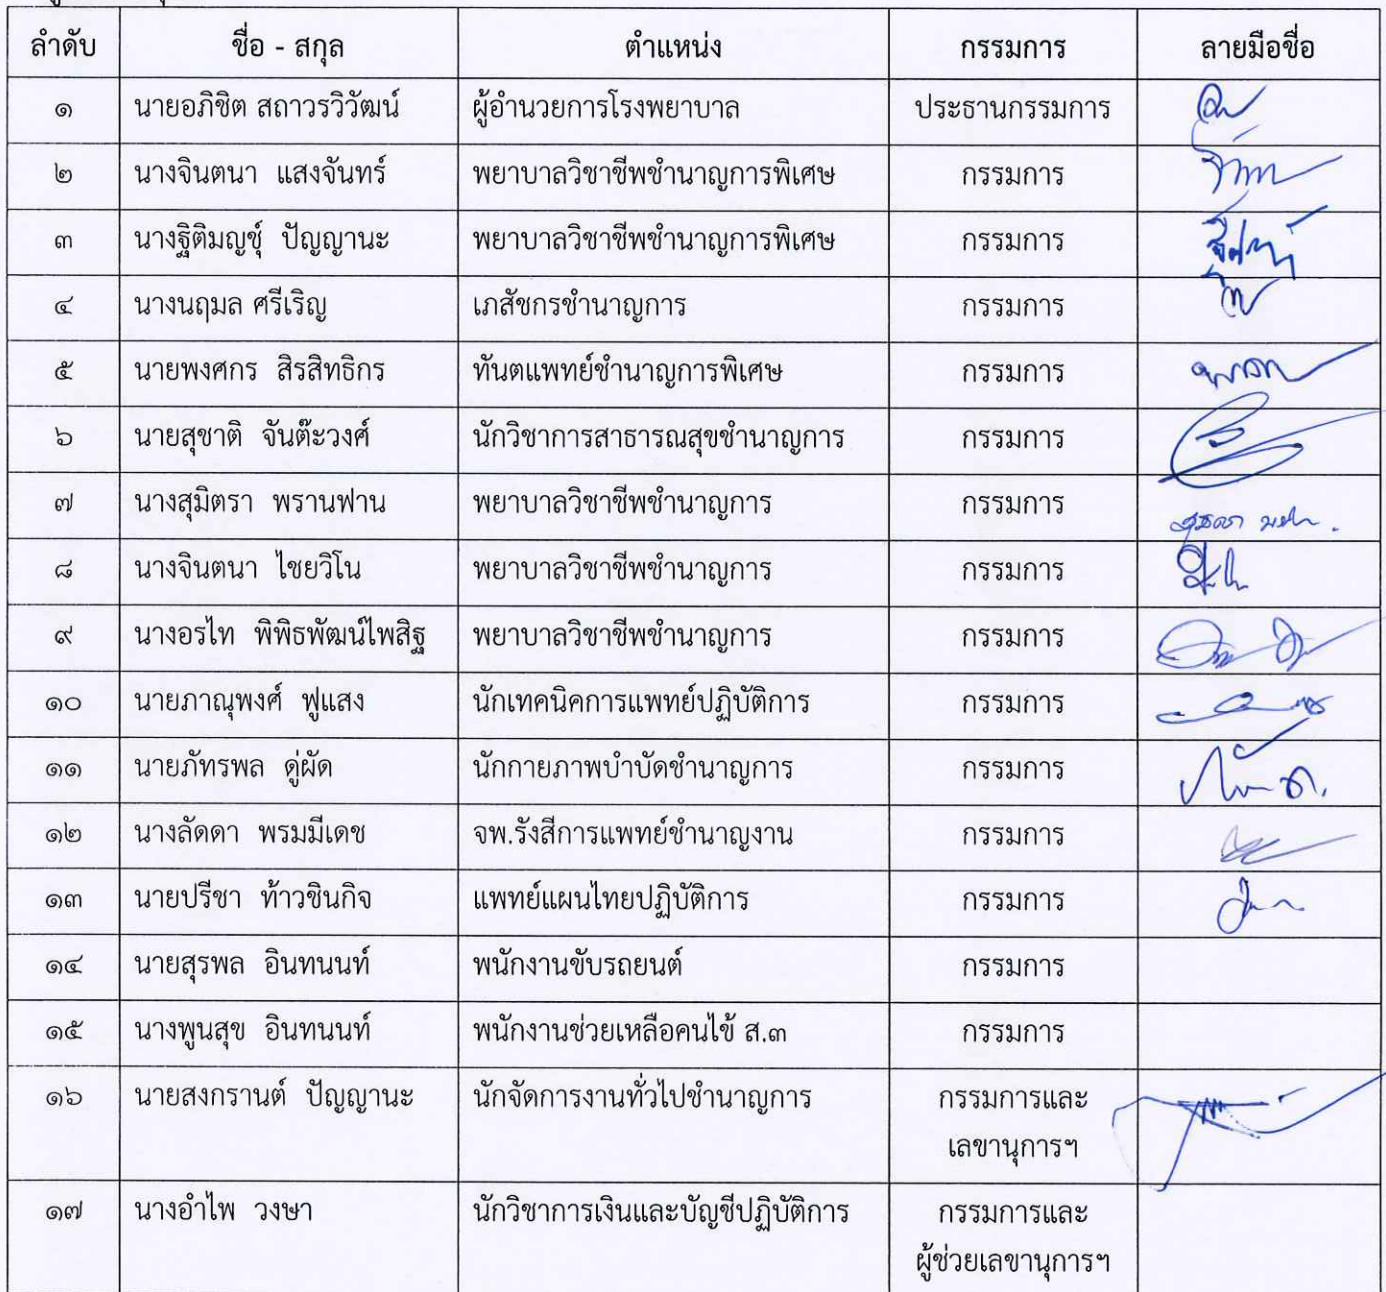 ลำดับ ชื่อ - สกุล ตำแหน่ง กรรมการ ลายมือชื่อ
๑ นายอภิชิต สถาวรวิวัฒน์ ผู้อำนวยการโรงพยาบาล ประธานกรรมการ
๒ นางจินตนา แสงจันทร์ พยาบาลวิชาชีพชำนาญการพิเศษ กรรมการ
๓ นางฐิติมญชุ์ ปัญญานะ พยาบาลวิชาชีพชำนาญการพิเศษ กรรมการ
๔ นางนฤมล ศรีเริญ เภสัชกรชำนาญการ กรรมการ
๕ นายพงศกร สิรสิทธิกร ทันตแพทย์ชำนาญการพิเศษ กรรมการ
๖ นายสุชาติ จันต๊ะวงศ์ นักวิชาการสาธารณสุขชำนาญการ กรรมการ
๗ นางสุมิตรา พรานฟาน พยาบาลวิชาชีพชำนาญการ กรรมการ
๘ นางจินตนา ไชยวิโน พยาบาลวิชาชีพชำนาญการ กรรมการ
๙ นางอรไท พิพิธพัฒน์ไพสิฐ พยาบาลวิชาชีพชำนาญการ กรรมการ
๑๐ นายภาณุพงศ์ ฟูแสง นักเทคนิคการแพทย์ปฏิบัติการ กรรมการ
๑๑ นายภัทรพล ดู่ผัด นักกายภาพบำบัดชำนาญการ กรรมการ
๑๒ นางลัดดา พรมมีเดช จพ.รังสีการแพทย์ชำนาญงาน กรรมการ
๑๓ นายปรีชา ท้าวชินกิจ แพทย์แผนไทยปฏิบัติการ กรรมการ
๑๔ นายสุรพล อินทนนท์ พนักงานขับรถยนต์ กรรมการ
๑๕ นางพูนสุข อินทนนท์ พนักงานช่วยเหลือคนไข้ ส.๓ กรรมการ
๑๖ นายสงกรานต์ ปัญญานะ นักจัดการงานทั่วไปชำนาญการ กรรมการและ
เลขานุการฯ
๑๗ นางอำไพ วงษา นักวิชาการเงินและบัญชีปฏิบัติการ กรรมการและ
ผู้ช่วยเลขานุการฯ